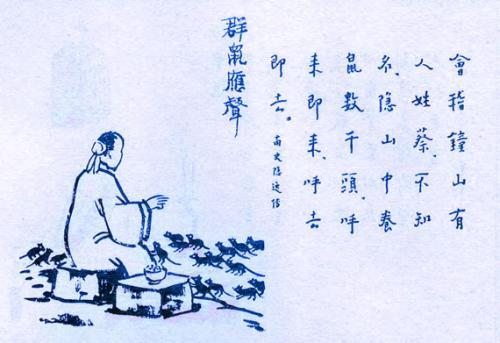 會稽鐘山有
人姓蔡、不知
名、隐山中養
鼠數千頭、呼
来即来、呼去
即去。
南史隐逸传
群鼠應聲